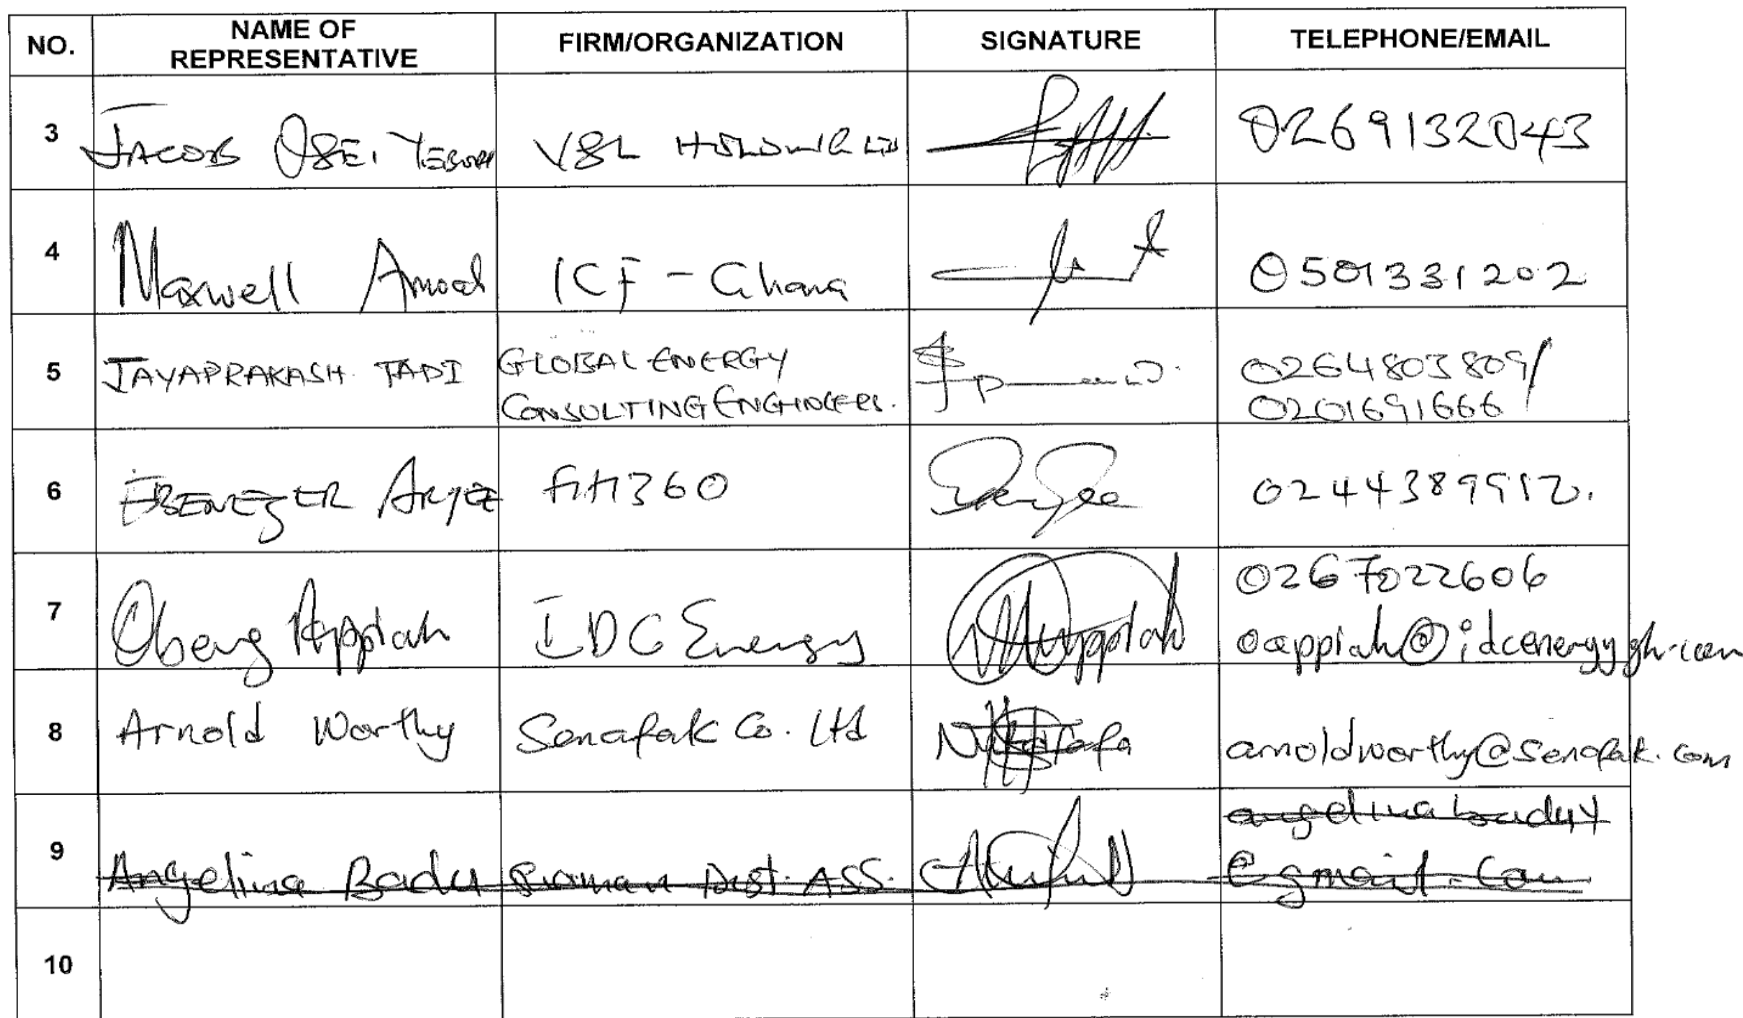 NO. NAME OF REPRESENTATIVE FIRM/ORGANIZATION SIGNATURE TELEPHONE/EMAIL
3 JACOB OSEI YEBOAH VSL HOLDING LTD 0269132043
4 Maxwell Amoah ICF - Ghana 0501331202
5 JAYAPRAKASH TADI GLOBAL ENERGY 0264803809/
CONSULTING ENGINEERS. 0201691666
6 EBENEZER ARYEE fhi360 0244389912.
7 Obeng Appiah IDC Energy 0267022606
oappiah@idcenergygh.com
8 Arnold Worthy Senafak Co. Ltd arnoldworthy@senafak.com
9 Angelina Badu Dist. ASS. angelinabadu4
@gmail.com
10